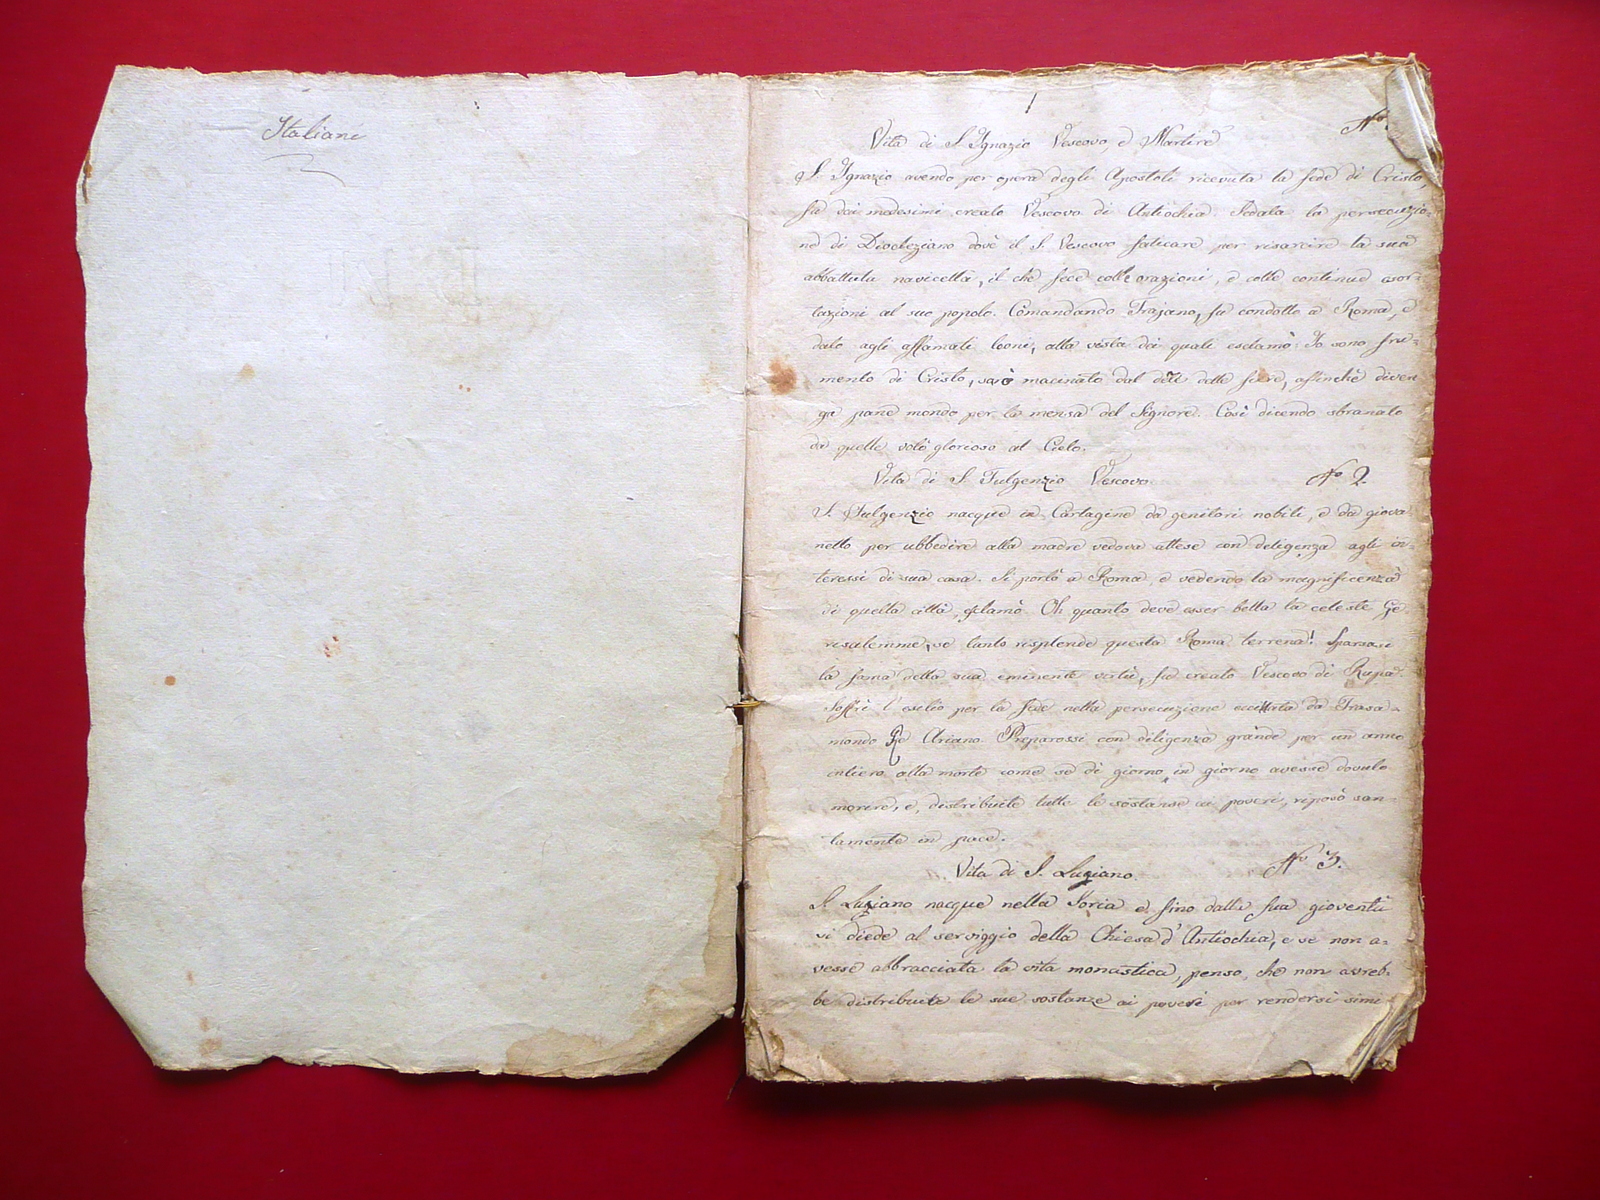 Italiani
1
Vita di S. Ignazio Vescovo, e Martire
No
S. Ignazio avendo per opera degli Apostoli ricevuta la fede di Cristo,
fu dai medesimi creato Vescovo di Antiochia. Sedata la persecuzio-
ne di Diocleziano dovè il S. Vescovo faticare per risarcire la sua
abbattuta navicella, il che fece colle orazioni, e colle continue esor-
tazioni al suo popolo. Comandando Trajano, fu condotto a Roma, e
dato agli affamati leoni, alla vista dei quali esclamò: Io sono fru-
mento di Cristo, sarò macinato dal dente delle fiere, affinchè diven
ga pane mondo per la mensa del Signore. Così dicendo sbranato
da quelle volò glorioso al Cielo.
Vita di S. Fulgenzio Vescovo
No 2.
S. Fulgenzio nacque in Cartagine da genitori nobili, e da giova
netto per ubbedire alla madre vedova attese con deligenza agli in-
teressi di sua casa. Si portò a Roma, e vedendo la magnificenza
di quella città, esclamò. Oh quanto deve esser bella la celeste Ge
rusalemme, se tanto risplende questa Roma terrena! Sparsasi
la fama della sua eminente virtù, fu creato Vescovo di Ruspa.
Soffrì l'esilio per la fede nella persecuzione eccitata da Trasa-
mondo Re Ariano. Preparossi con diligenza grande per un anno
intiero alla morte come se di giorno in giorno avesse dovuto
morire, e, distribuite tutte le sostanse ai poveri, riposò san-
tamente in pace.
Vita di S. Luziano.
No 3.
S. Luziano nacque nella Soria e fino dalla sua gioventù
si diede al serviggio della Chiesa d'Antiochia, e se non a-
vesse abbracciata la vita monastica, penso, che non avreb-
be distribuite le sue sostanze ai poveri per rendersi simi